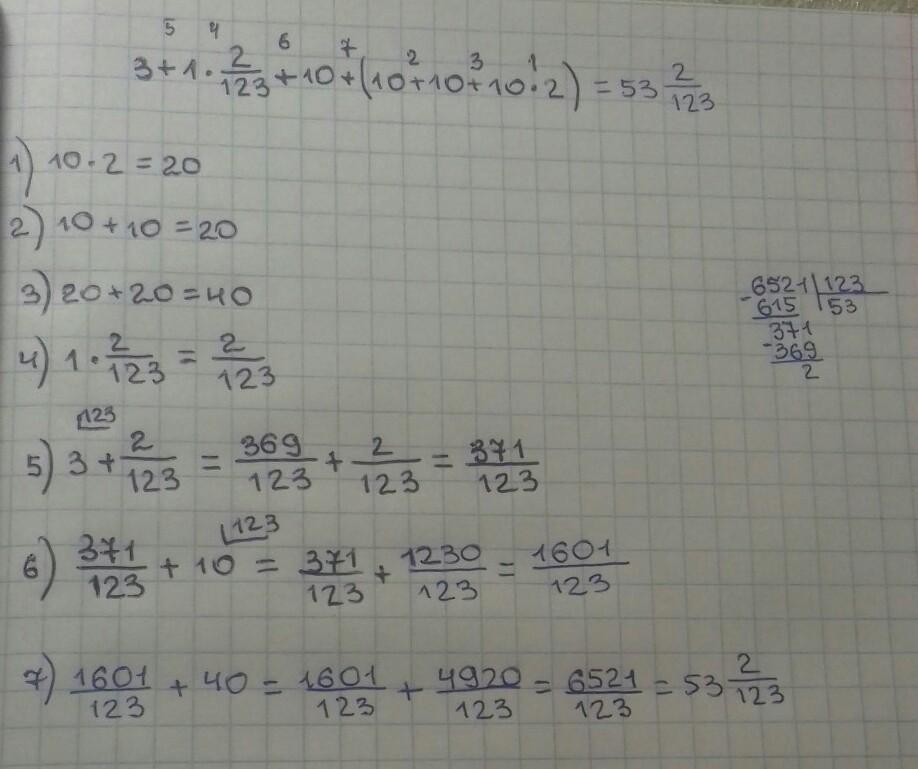 5 4 6 7 2 3 1
3 + 1 · 2/123 + 10 + (10 + 10 + 10 · 2) = 53 2/123
1) 10 · 2 = 20
2) 10 + 10 = 20
3) 20 + 20 = 40
4) 1 · 2/123 = 2/123
123
5) 3 + 2/123 = 369/123 + 2/123 = 371/123
123
6) 371/123 + 10 = 371/123 + 1230/123 = 1601/123
7) 1601/123 + 40 = 1601/123 + 4920/123 = 6521/123 = 53 2/123
-6521 | 123
615 | 53
371
-369
2